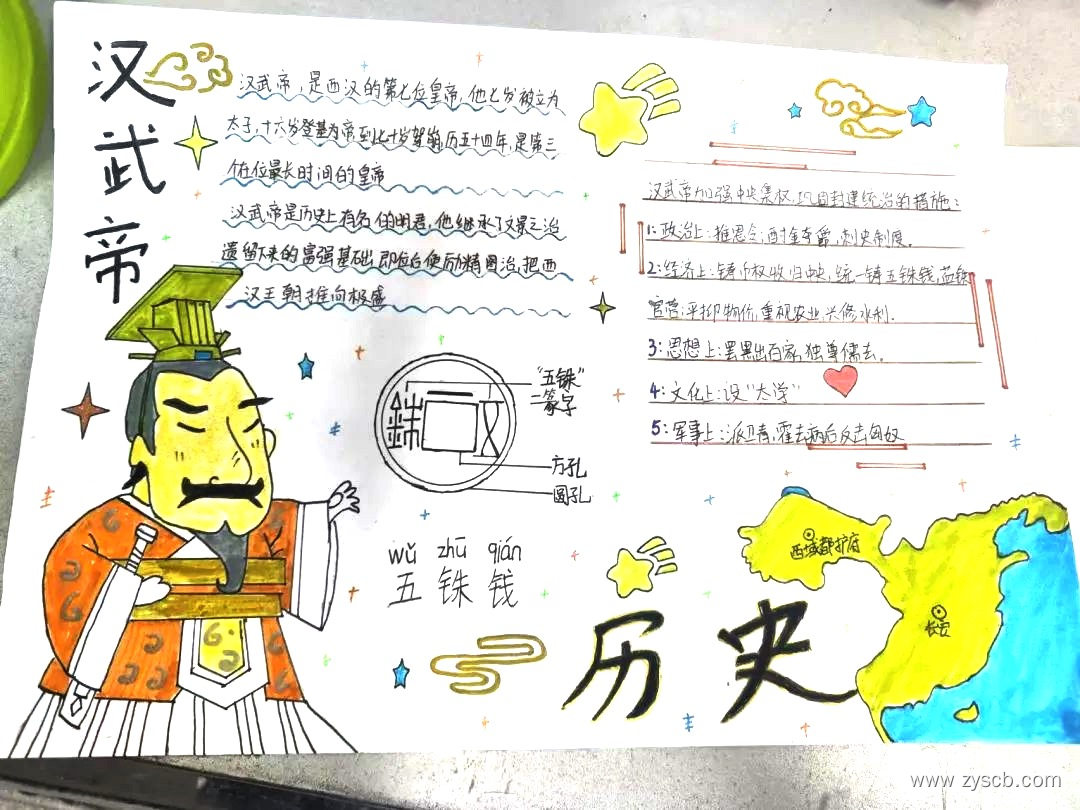 汉武帝
汉武帝，是西汉的第七位皇帝，他七岁被立为
太子，十六岁登基为帝到七十岁驾崩，历五十四年，是第三
位在位最长时间的皇帝
汉武帝是历史上有名的明君，他继承了文景之治
遗留下来的富强基础，即位后便励精图治，把西
汉王朝推向极盛
"五铢"
二篆字
方孔
圆孔
铢
wǔ zhū qián
五铢钱
汉武帝加强中央集权，巩固封建统治的措施：
1：政治上：推恩令；酎金夺爵，刺史制度。
2：经济上：铸币权收归中央，统一铸五铢钱，盐铁
官营；平抑物价，重视农业，兴修水利。
3：思想上：罢黜百家，独尊儒
4：文化上：设"太学"
5：军事上：派卫青，霍去病反击匈奴
西域都护府
长安
历史
www.zyscb.com